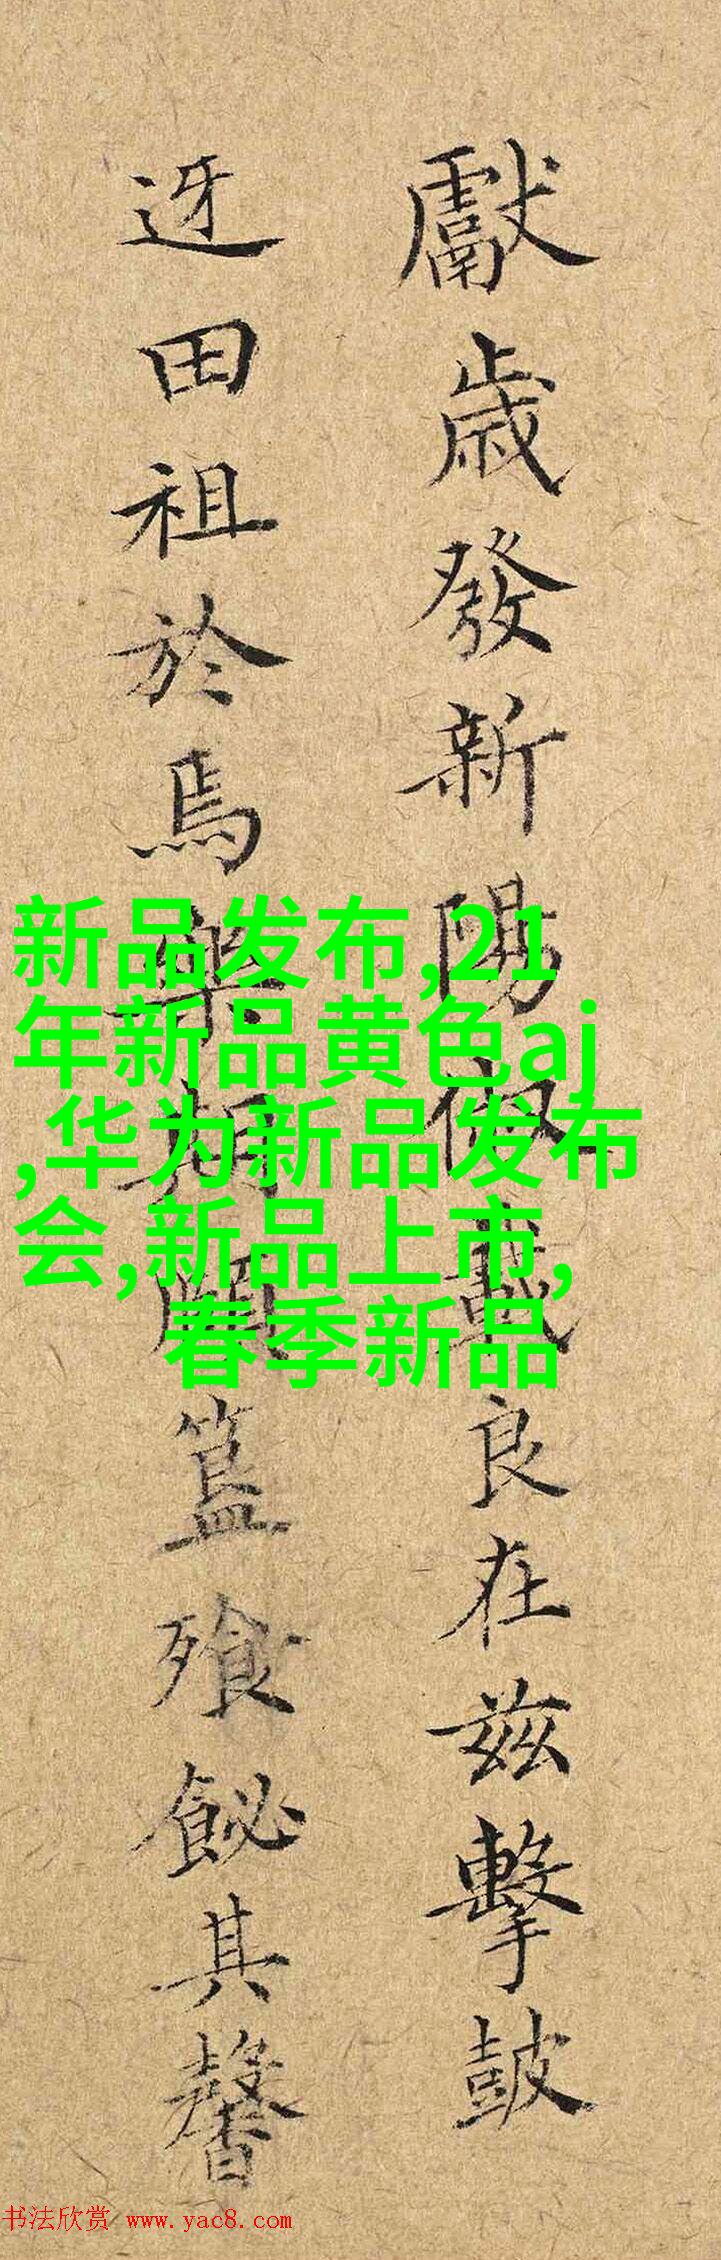 獻歲發新陽俶載良在茲擊鼓
迓田祖於焉樂期闢簋飱飶其馨
新品发布,21
年新品黄色aj
,华为新品发布
会,新品上市,
春季新品
书法欣赏 www.yac8.com